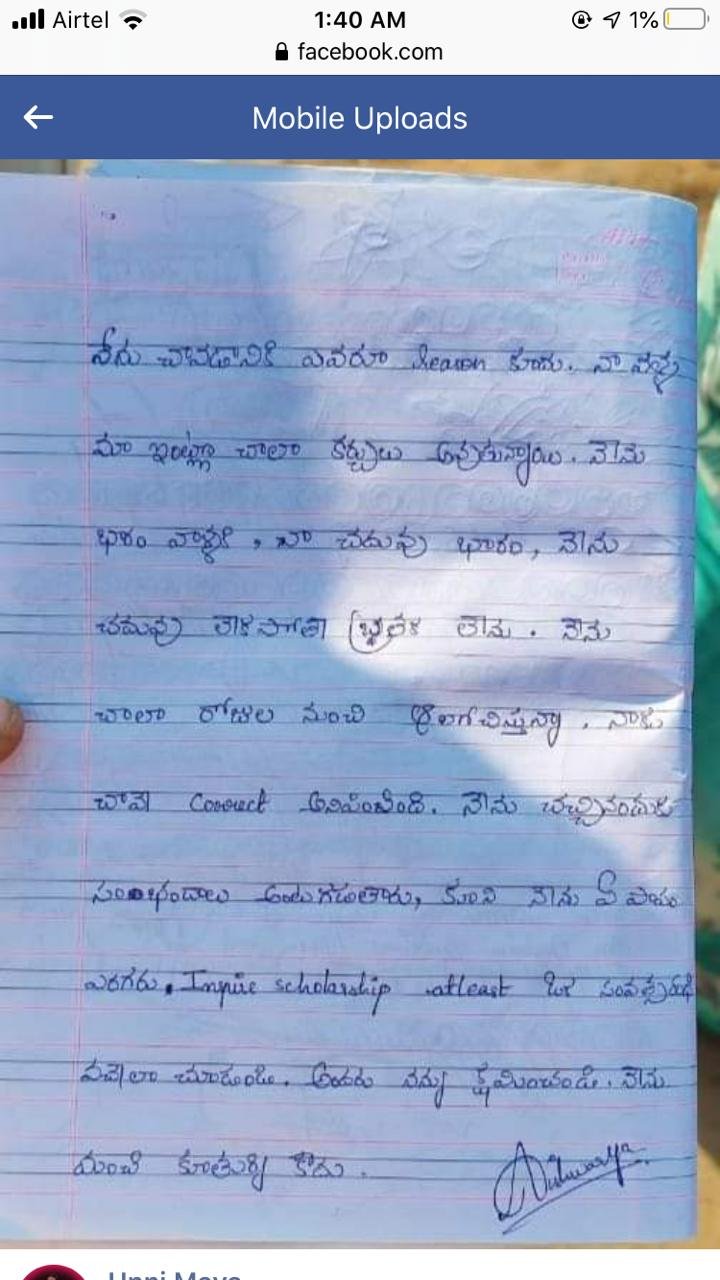 Airtel 1:40 AM 1%
facebook.com
Mobile Uploads
నేను చావడానికి ఎవరూ Reason కాదు. నా వల్ల
మా ఇంట్లో చాలా కర్చులు అవుతున్నాయి. నేనే
భారం వాళ్లకి, నా చదువు భారం, నేను
చదువు లేకపోతా బ్రతక లేను. నేను
చాలా రోజుల నుంచి ఆలోచిస్తున్నా. నాకు
చావే Correct అనిపించింది. నేను చచ్చినందుకు
అంటగడుతారు, కాని నేను ఏ పాపం
ఎరగరు. Inpire scholarship atleast ఒక
వచ్చేలా చూడండి. అందరు నన్ను క్షమించండి. నేను
మంచి కూతుర్ని కాదు.
Aishwarya